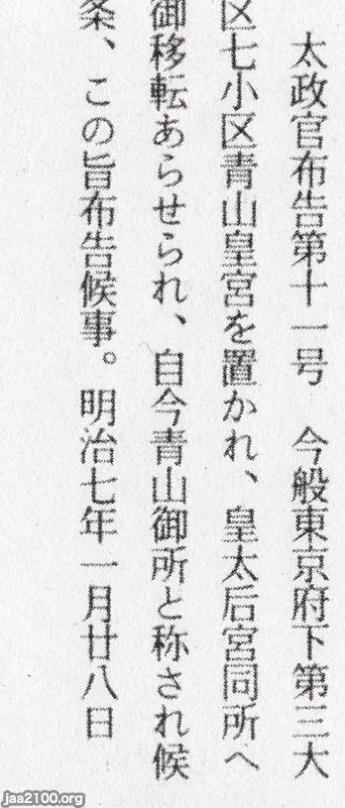 太政官布告第十一号　今般東京府下第三大
区七小区青山皇宮を置かれ、皇太后宮同所へ
御移転あらせられ、自今青山御所と称され候
条、この旨布告候事。明治七年一月廿八日
jaa2100.org